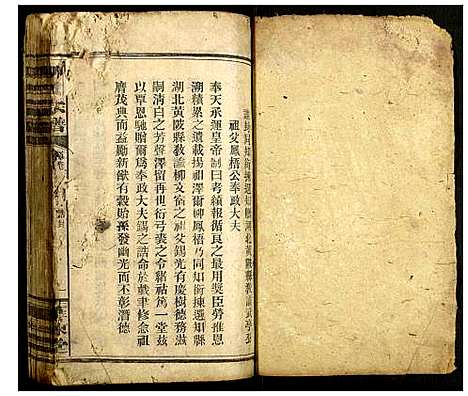 誥封同知銜揀選知縣湖北黃陂縣教諭
祖父鳳梧公奉政大夫
奉天承運皇帝制曰考績報循良之最用奬臣勞推恩
溯積累之遺載揚祖澤爾柳鳳梧乃同知銜揀選知縣
湖北黃陂縣敎諭柳文宿之祖父錫光有慶樹德務滋
嗣清白之芳聲澤留再世衍弓裘之令緒祜篤一堂茲
以覃恩馳贈爾爲奉政大夫錫之誥命於戲聿修念祖
膺茂典而益勵新猷有榖貽孫發幽光而不彰潛德